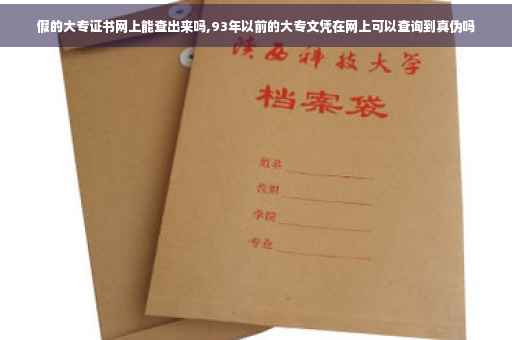 假的大专证书网上能查出来吗,93年以前的大专文凭在网上可以查询到真伪吗
陕西科技大学
档案袋
姓名
学院
专业